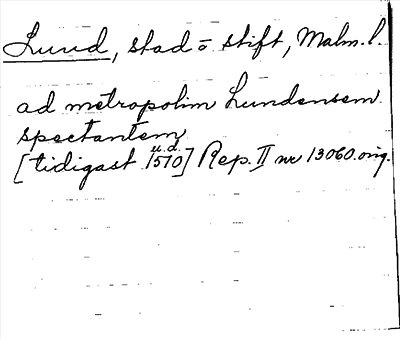 Lund, stad o stift, Malm. l.
ad metropolim Lundensem
spectantem
u.d.
[tidigast 1510] Rep. II nr 13060. orig.